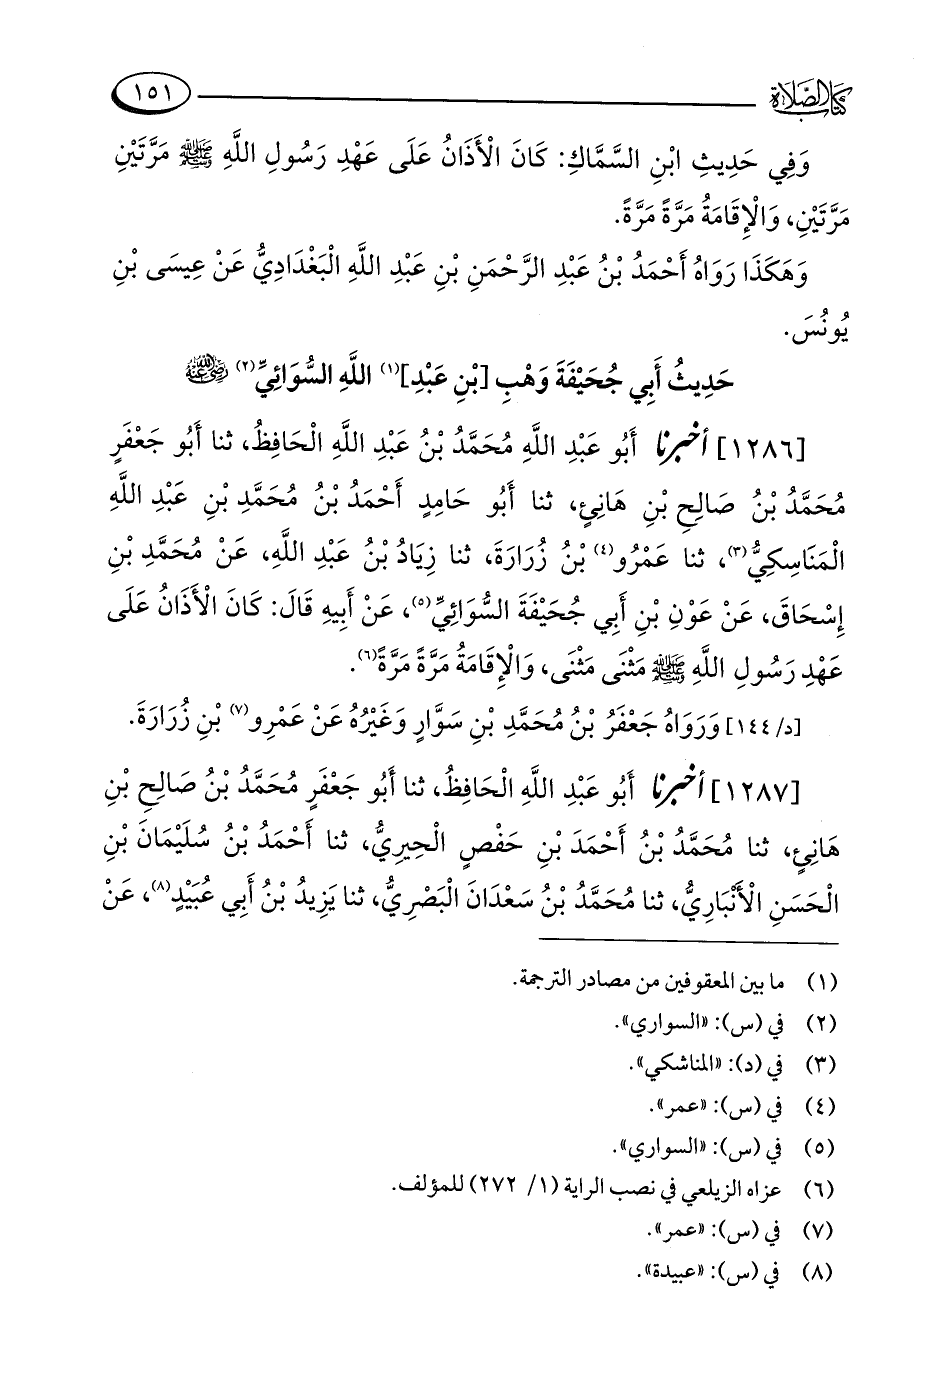 كتاب الصلاة ١٥١
وَفِي حَدِيثِ ابْنِ السَّمَّاكِ: كَانَ الْأَذَانُ عَلَى عَهْدِ رَسُولِ اللَّهِ ﷺ مَرَّتَيْنِ
مَرَّتَيْنِ، وَالْإِقَامَةُ مَرَّةً مَرَّةً.
وَهَكَذَا رَوَاهُ أَحْمَدُ بْنُ عَبْدِ الرَّحْمَنِ بْنِ عَبْدِ اللَّهِ الْبَغْدَادِيُّ عَنْ عِيسَى بْنِ
يُونُسَ.
حَدِيثُ أَبِي جُحَيْفَةَ وَهْبِ [بْنِ عَبْدِ](١) اللَّهِ السُّوَائِيِّ(٢) رضي الله عنه
[١٢٨٦] أخبرنا أَبُو عَبْدِ اللَّهِ مُحَمَّدُ بْنُ عَبْدِ اللَّهِ الْحَافِظُ، ثنا أَبُو جَعْفَرٍ
مُحَمَّدُ بْنُ صَالِحِ بْنِ هَانِئٍ، ثنا أَبُو حَامِدٍ أَحْمَدُ بْنُ مُحَمَّدِ بْنِ عَبْدِ اللَّهِ
الْمَنَاسِكِيُّ(٣)، ثنا عَمْرُو(٤) بْنُ زُرَارَةَ، ثنا زِيَادُ بْنُ عَبْدِ اللَّهِ، عَنْ مُحَمَّدِ بْنِ
إِسْحَاقَ، عَنْ عَوْنِ بْنِ أَبِي جُحَيْفَةَ السُّوَائِيِّ(٥)، عَنْ أَبِيهِ قَالَ: كَانَ الْأَذَانُ عَلَى
عَهْدِ رَسُولِ اللَّهِ ﷺ مَثْنَى مَثْنَى، وَالْإِقَامَةُ مَرَّةً مَرَّةً(٦).
[د/١٤٤] وَرَوَاهُ جَعْفَرُ بْنُ مُحَمَّدِ بْنِ سَوَّارٍ وَغَيْرُهُ عَنْ عَمْرِو(٧) بْنِ زُرَارَةَ.
[١٢٨٧] أخبرنا أَبُو عَبْدِ اللَّهِ الْحَافِظُ، ثنا أَبُو جَعْفَرٍ مُحَمَّدُ بْنُ صَالِحِ بْنِ
هَانِئٍ، ثنا مُحَمَّدُ بْنُ أَحْمَدَ بْنِ حَفْصٍ الْحِيرِيُّ، ثنا أَحْمَدُ بْنُ سُلَيْمَانَ بْنِ
الْحَسَنِ الْأَنْبَارِيُّ، ثنا مُحَمَّدُ بْنُ سَعْدَانَ الْبَصْرِيُّ، ثنا يَزِيدُ بْنُ أَبِي عُبَيْدٍ(٨)، عَنْ
(١) ما بين المعقوفين من مصادر الترجمة.
(٢) في (س): «السواري».
(٣) في (د): «المناشكي».
(٤) في (س): «عمر».
(٥) في (س): «السواري».
(٦) عزاه الزيلعي في نصب الراية (١/ ٢٧٢) للمؤلف.
(٧) في (س): «عمر».
(٨) في (س): «عبيدة».